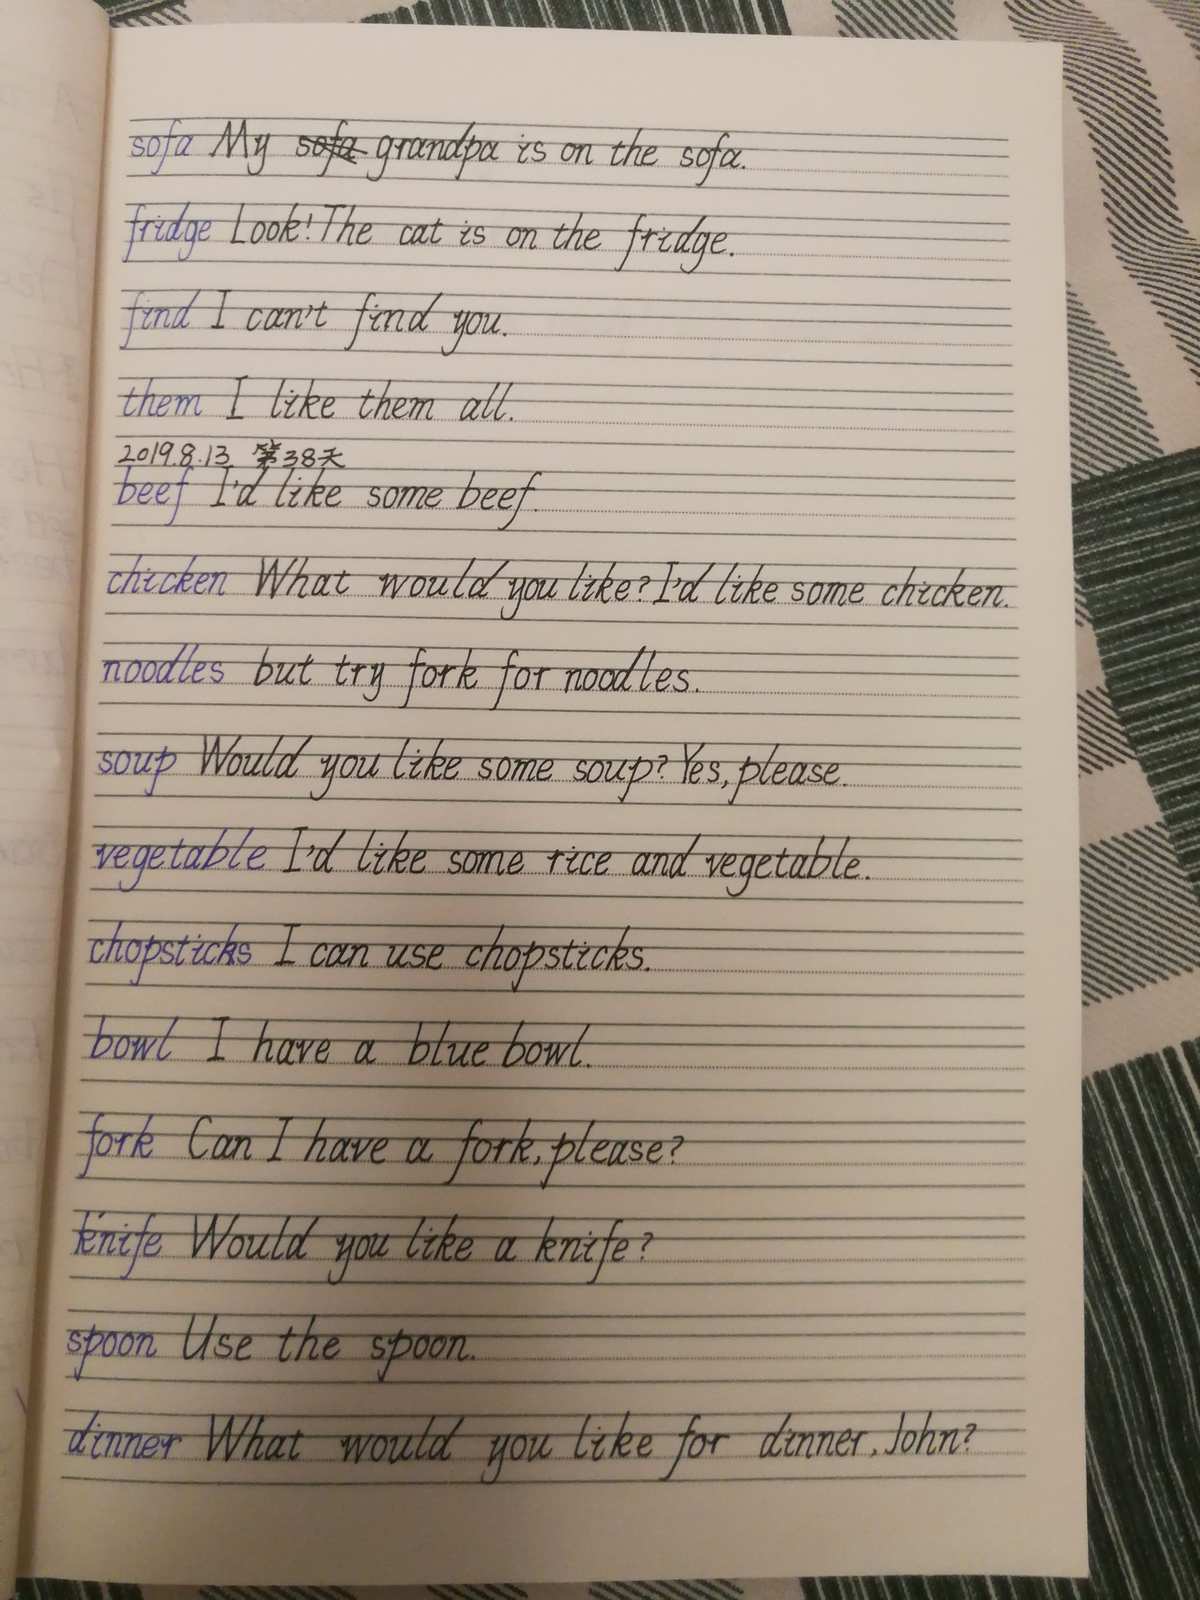 sofa My sofa grandpa is on the sofa.
fridge Look! The cat is on the fridge.
find I can't find you.
them I like them all.
2019.8.13 第38天
beef I'd like some beef.
chicken What would you like? I'd like some chicken.
noodles but try fork for noodles.
soup Would you like some soup? Yes, please.
vegetable I'd like some rice and vegetable.
chopsticks I can use chopsticks.
bowl I have a blue bowl.
fork Can I have a fork, please?
knife Would you like a knife?
spoon Use the spoon.
dinner What would you like for dinner, John?